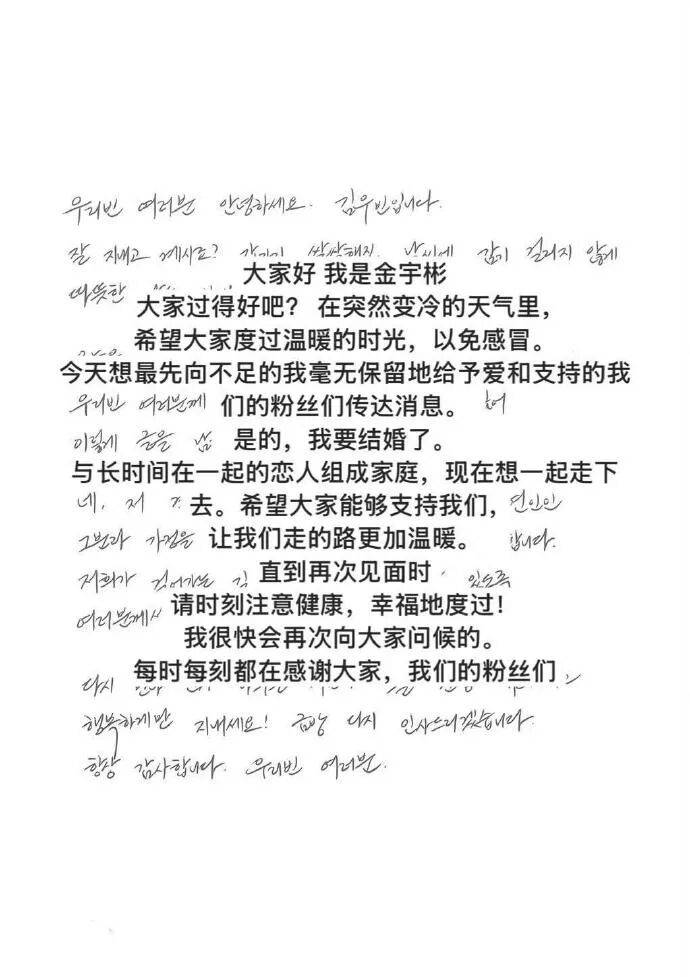 우리빈 여러분 안녕하세요. 김우빈입니다.
잘 지내고 계시죠? 갑자기 쌀쌀해진 날씨에 감기 걸리지 않게
大家好 我是金宇彬
따뜻한
大家过得好吧? 在突然变冷的天气里,
希望大家度过温暖的时光，以免感冒。
今天想最先向不足的我毫无保留地给予爱和支持的我
우리빈 여러분께 们的粉丝们传达消息。
이렇게 글을 남 是的，我要结婚了。
与长时间在一起的恋人组成家庭，现在想一起走下
네, 저 去。希望大家能够支持我们, 연인인
그분과 가정을 让我们走的路更加温暖。 합니다.
저희가 걸어가는 길 直到再次见面时 있도록
여러분께서 请时刻注意健康，幸福地度过!
我很快会再次向大家问候的。
每时每刻都在感谢大家，我们的粉丝们
다시
행복하게만 지내세요! 금방 다시 인사드리겠습니다.
항상 감사합니다. 우리빈 여러분.